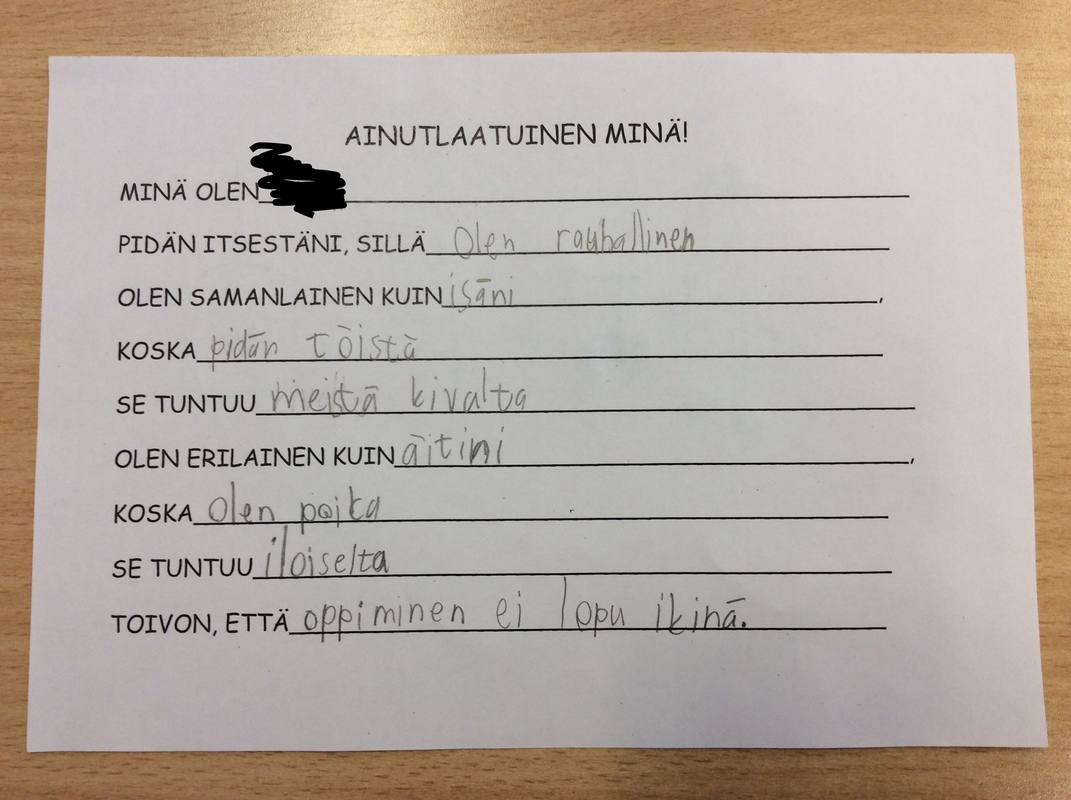 AINUTLAATUINEN MINÄ!
MINÄ OLEN
PIDÄN ITSESTÄNI, SILLÄ Olen rauhallinen
OLEN SAMANLAINEN KUIN isäni,
KOSKA pidän töistä
SE TUNTUU meistä kivalta
OLEN ERILAINEN KUIN äitini,
KOSKA Olen poika
SE TUNTUU iloiselta
TOIVON, ETTÄ oppiminen ei lopu ikinä.